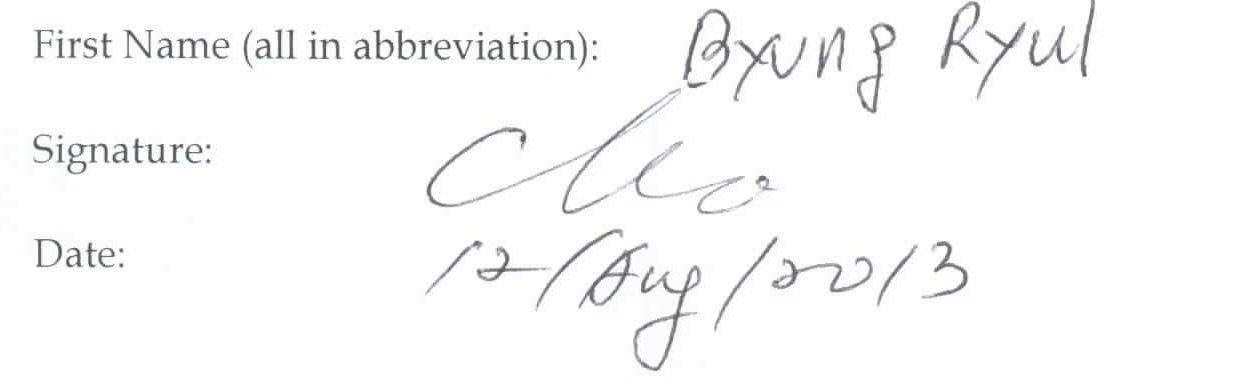 First Name (all in abbreviation): Byung Ryul
Signature: Cho
Date: 12/Aug/2013